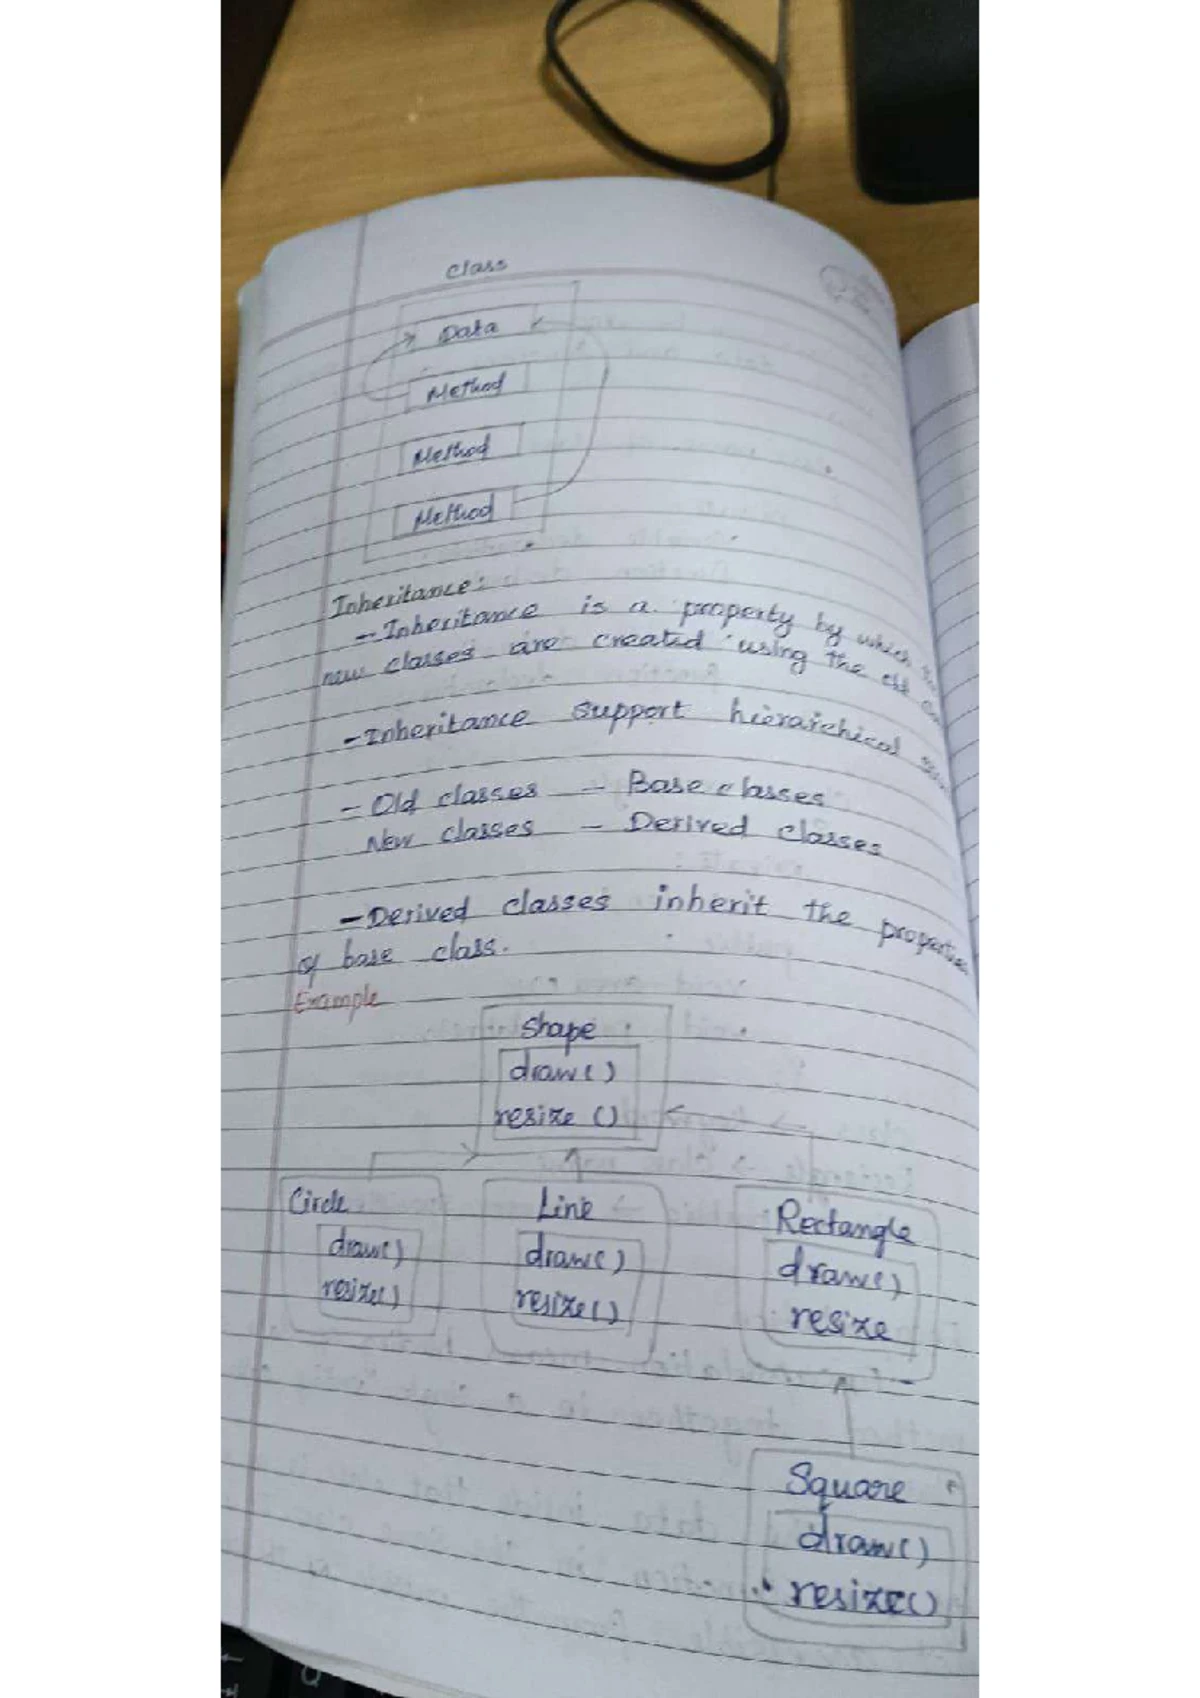 class
Data
Method
Method
Method
Inheritance:
- Inheritance is a property by which the
new classes are created using the old
- Inheritance support hierarchical
- Old classes - Base classes
New classes - Derived classes
- Derived classes inherit the properties
of base class.
Example
Shape
draw()
resize ()
Circle
draw()
resize()
Line
draw()
resize()
Rectangle
draw()
resize
Square
draw()
resize()